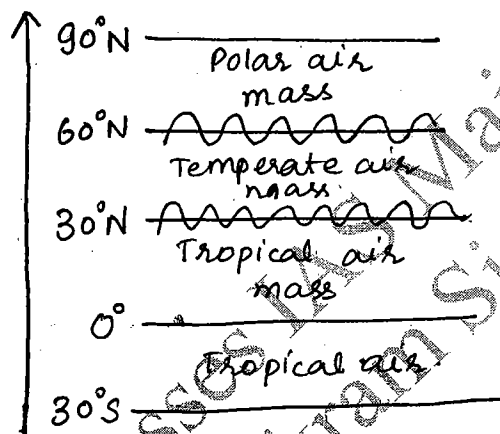 90°N
Polar air
mass
60°N
Temperate air
mass.
30°N
Tropical air
mass
0°
Tropical air.
30°S